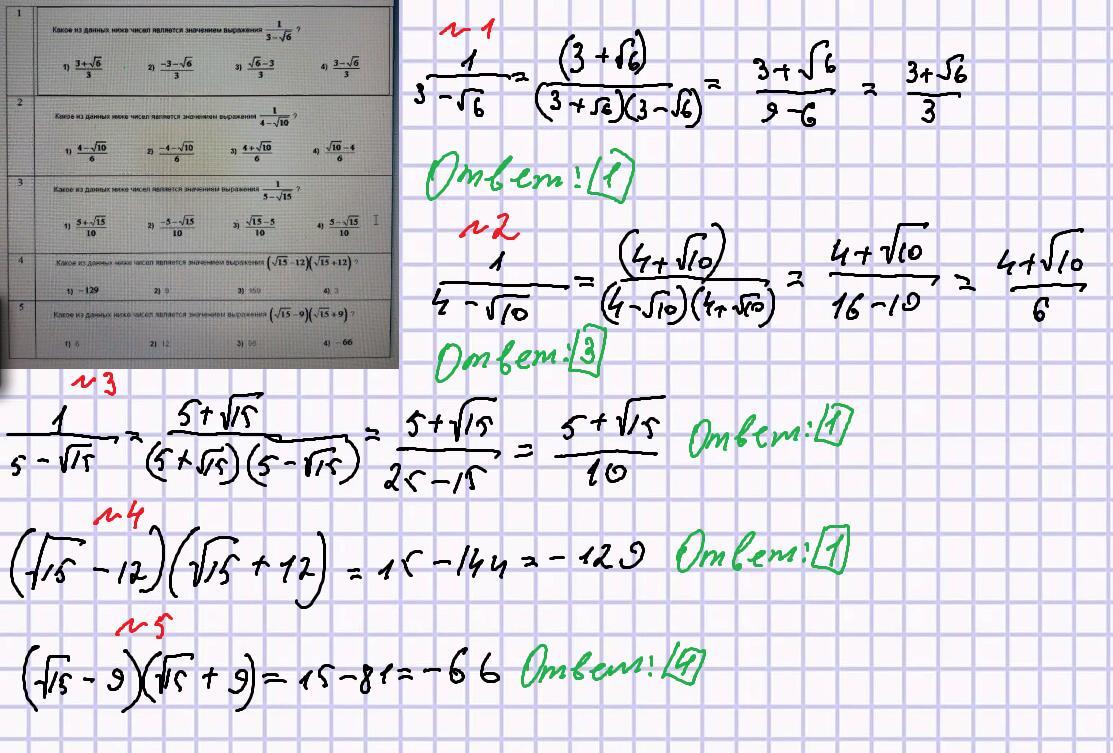 1
Какое из данных ниже чисел является значением выражения 1/(3−√6) ?
1) (3+√6)/3 2) (−3−√6)/3 3) (√6−3)/3 4) (3−√6)/3
2
Какое из данных ниже чисел является значением выражения 1/(4−√10) ?
1) (4−√10)/6 2) (−4−√10)/6 3) (4+√10)/6 4) (√10−4)/6
3
Какое из данных ниже чисел является значением выражения 1/(5−√15) ?
1) (5+√15)/10 2) (−5−√15)/10 3) (√15−5)/10 4) (5−√15)/10
4
Какое из данных ниже чисел является значением выражения (√15−12)(√15+12) ?
1) −129 2) 9 3) 159 4) 3
5
Какое из данных ниже чисел является значением выражения (√15−9)(√15+9) ?
1) 6 2) 12 3) 96 4) −66
№1
1/(3−√6) = (3+√6)/((3+√6)(3−√6)) = (3+√6)/(9−6) = (3+√6)/3
Ответ: 1
№2
1/(4−√10) = (4+√10)/((4−√10)(4+√10)) = (4+√10)/(16−10) = (4+√10)/6
Ответ: 3
№3
1/(5−√15) = (5+√15)/((5+√15)(5−√15)) = (5+√15)/(25−15) = (5+√15)/10 Ответ: 1
№4
(√15−12)(√15+12) = 15−144 = −129 Ответ: 1
№5
(√15−9)(√15+9) = 15−81 = −66 Ответ: 4